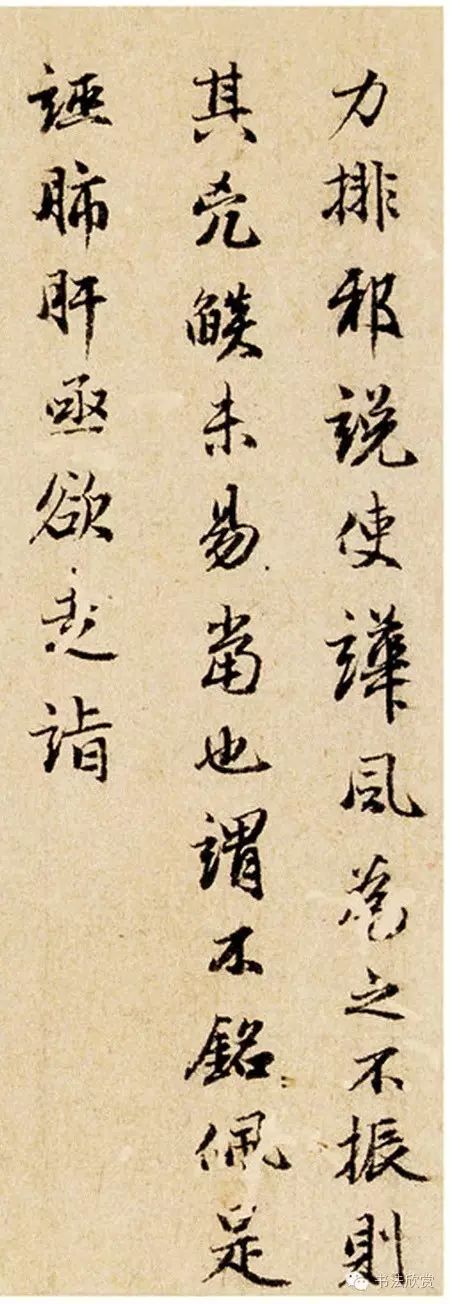 力排邪說使譁風之不振則
其兇燄未易當也謂不銘佩是
誣肺肝亟欲走詣
书法欣赏